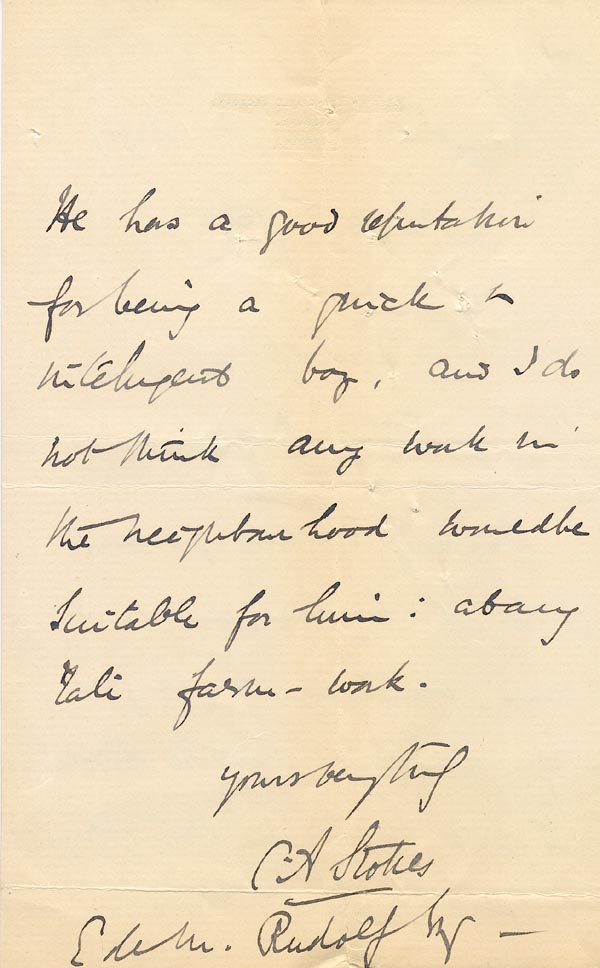 He has a good reputation
for being a quick &
intelligent boy, and I do
not think any work in
the neighbourhood would be
suitable for him : at any
rate farm - work.
Yours very truly
C A Stokes
E de M. Rudolf Esq -